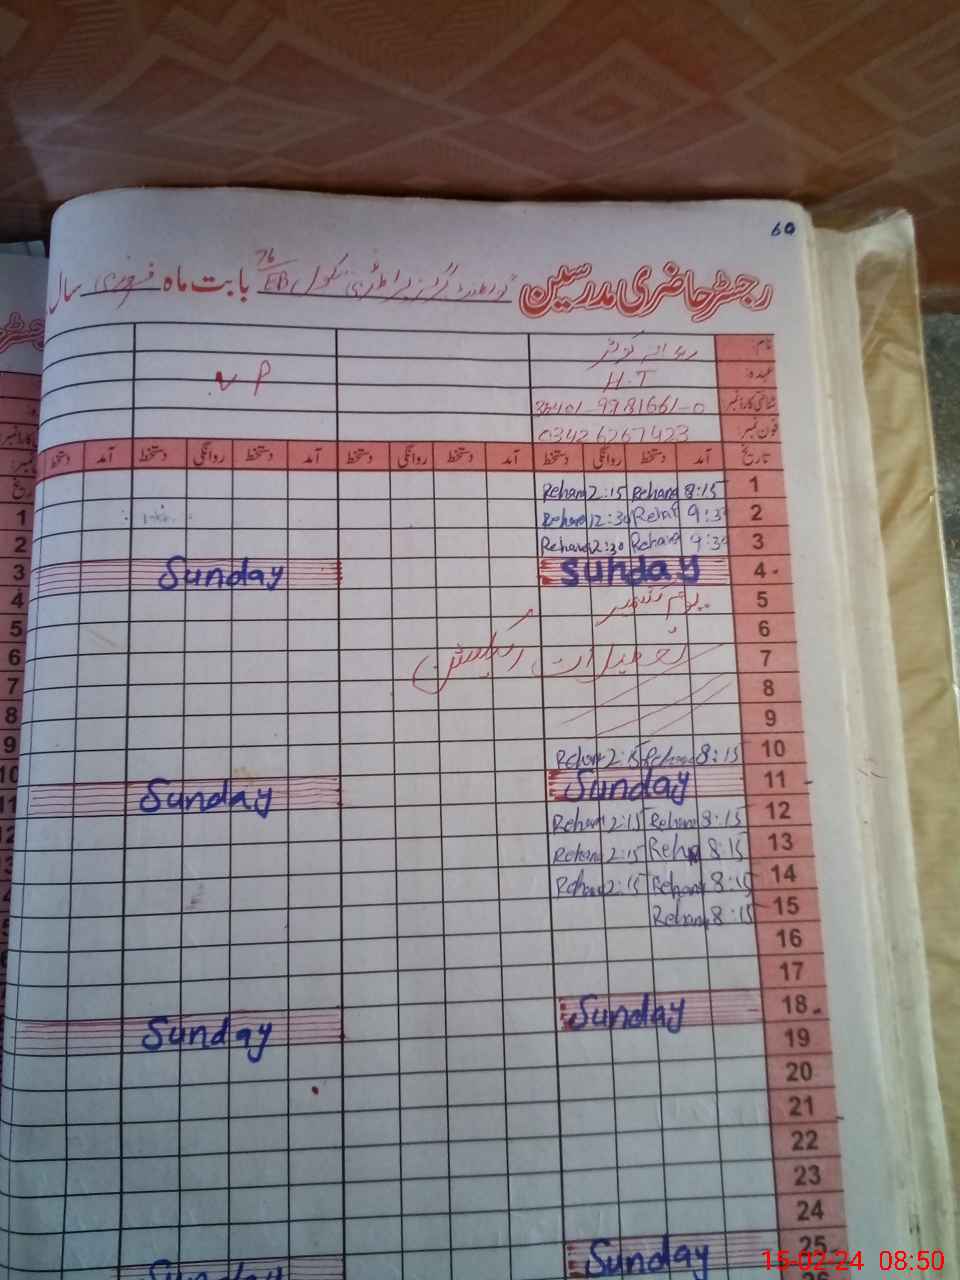 60
رجسٹر حاضری مدرسین گورنمنٹ گرلز پرائمری سکول 76 EB بابت ماہ فروری سال
نام:
عہدہ: H.T
شناختی کارڈ نمبر
فون نمبر: 03426267423
V P
تاریخ آمد دستخط روانگی دستخط آمد دستخط روانگی دستخط آمد دستخط روانگی دستخط آمد دستخط
1 8:15 Rehana 2:15 Rehana
2 9:30 Rehana 12:30 Rehana
3 9:30 Rehana 2:30 Rehana
4 Sunday Sunday
5 یوم کشمیر
6
7 تعطیلات الیکشن
8
9
10 8:15 Rehana 2:15 Rehana
11 Sunday Sunday
12 8:15 Rehana 2:15 Rehana
13 8:15 Rehana 2:15 Rehana
14 8:15 Rehana 2:15 Rehana
15 8:15 Rehana
16
17
18 Sunday Sunday
19
20
21
22
23
24
25 Sunday Sunday
15-02-24 08:50